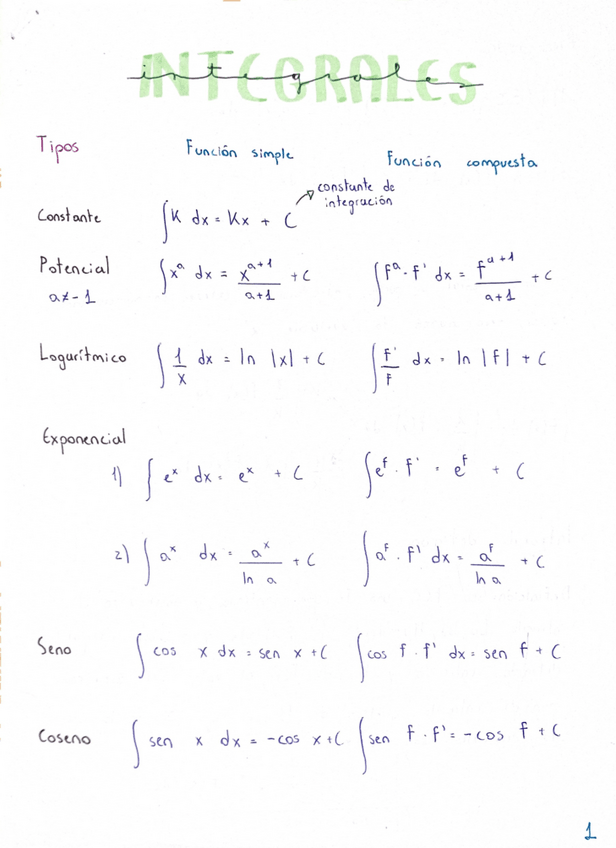 INTEGRALES
integrales
Tipos Función simple Función compuesta
Constante ∫K dx = Kx + C → constante de integración
Potencial a≠-1 ∫x^a dx = x^(a+1)/(a+1) + C ∫f^a · f' dx = f^(a+1)/(a+1) + C
Logarítmico ∫1/x dx = ln |x| + C ∫f'/f dx = ln |f| + C
Exponencial
1) ∫e^x dx = e^x + C ∫e^f · f' = e^f + C
2) ∫a^x dx = a^x/ln a + C ∫a^f · f' dx = a^f/ln a + C
Seno ∫cos x dx = sen x + C ∫cos f · f' dx = sen f + C
Coseno ∫sen x dx = -cos x + C ∫sen f · f' = -cos f + C
1